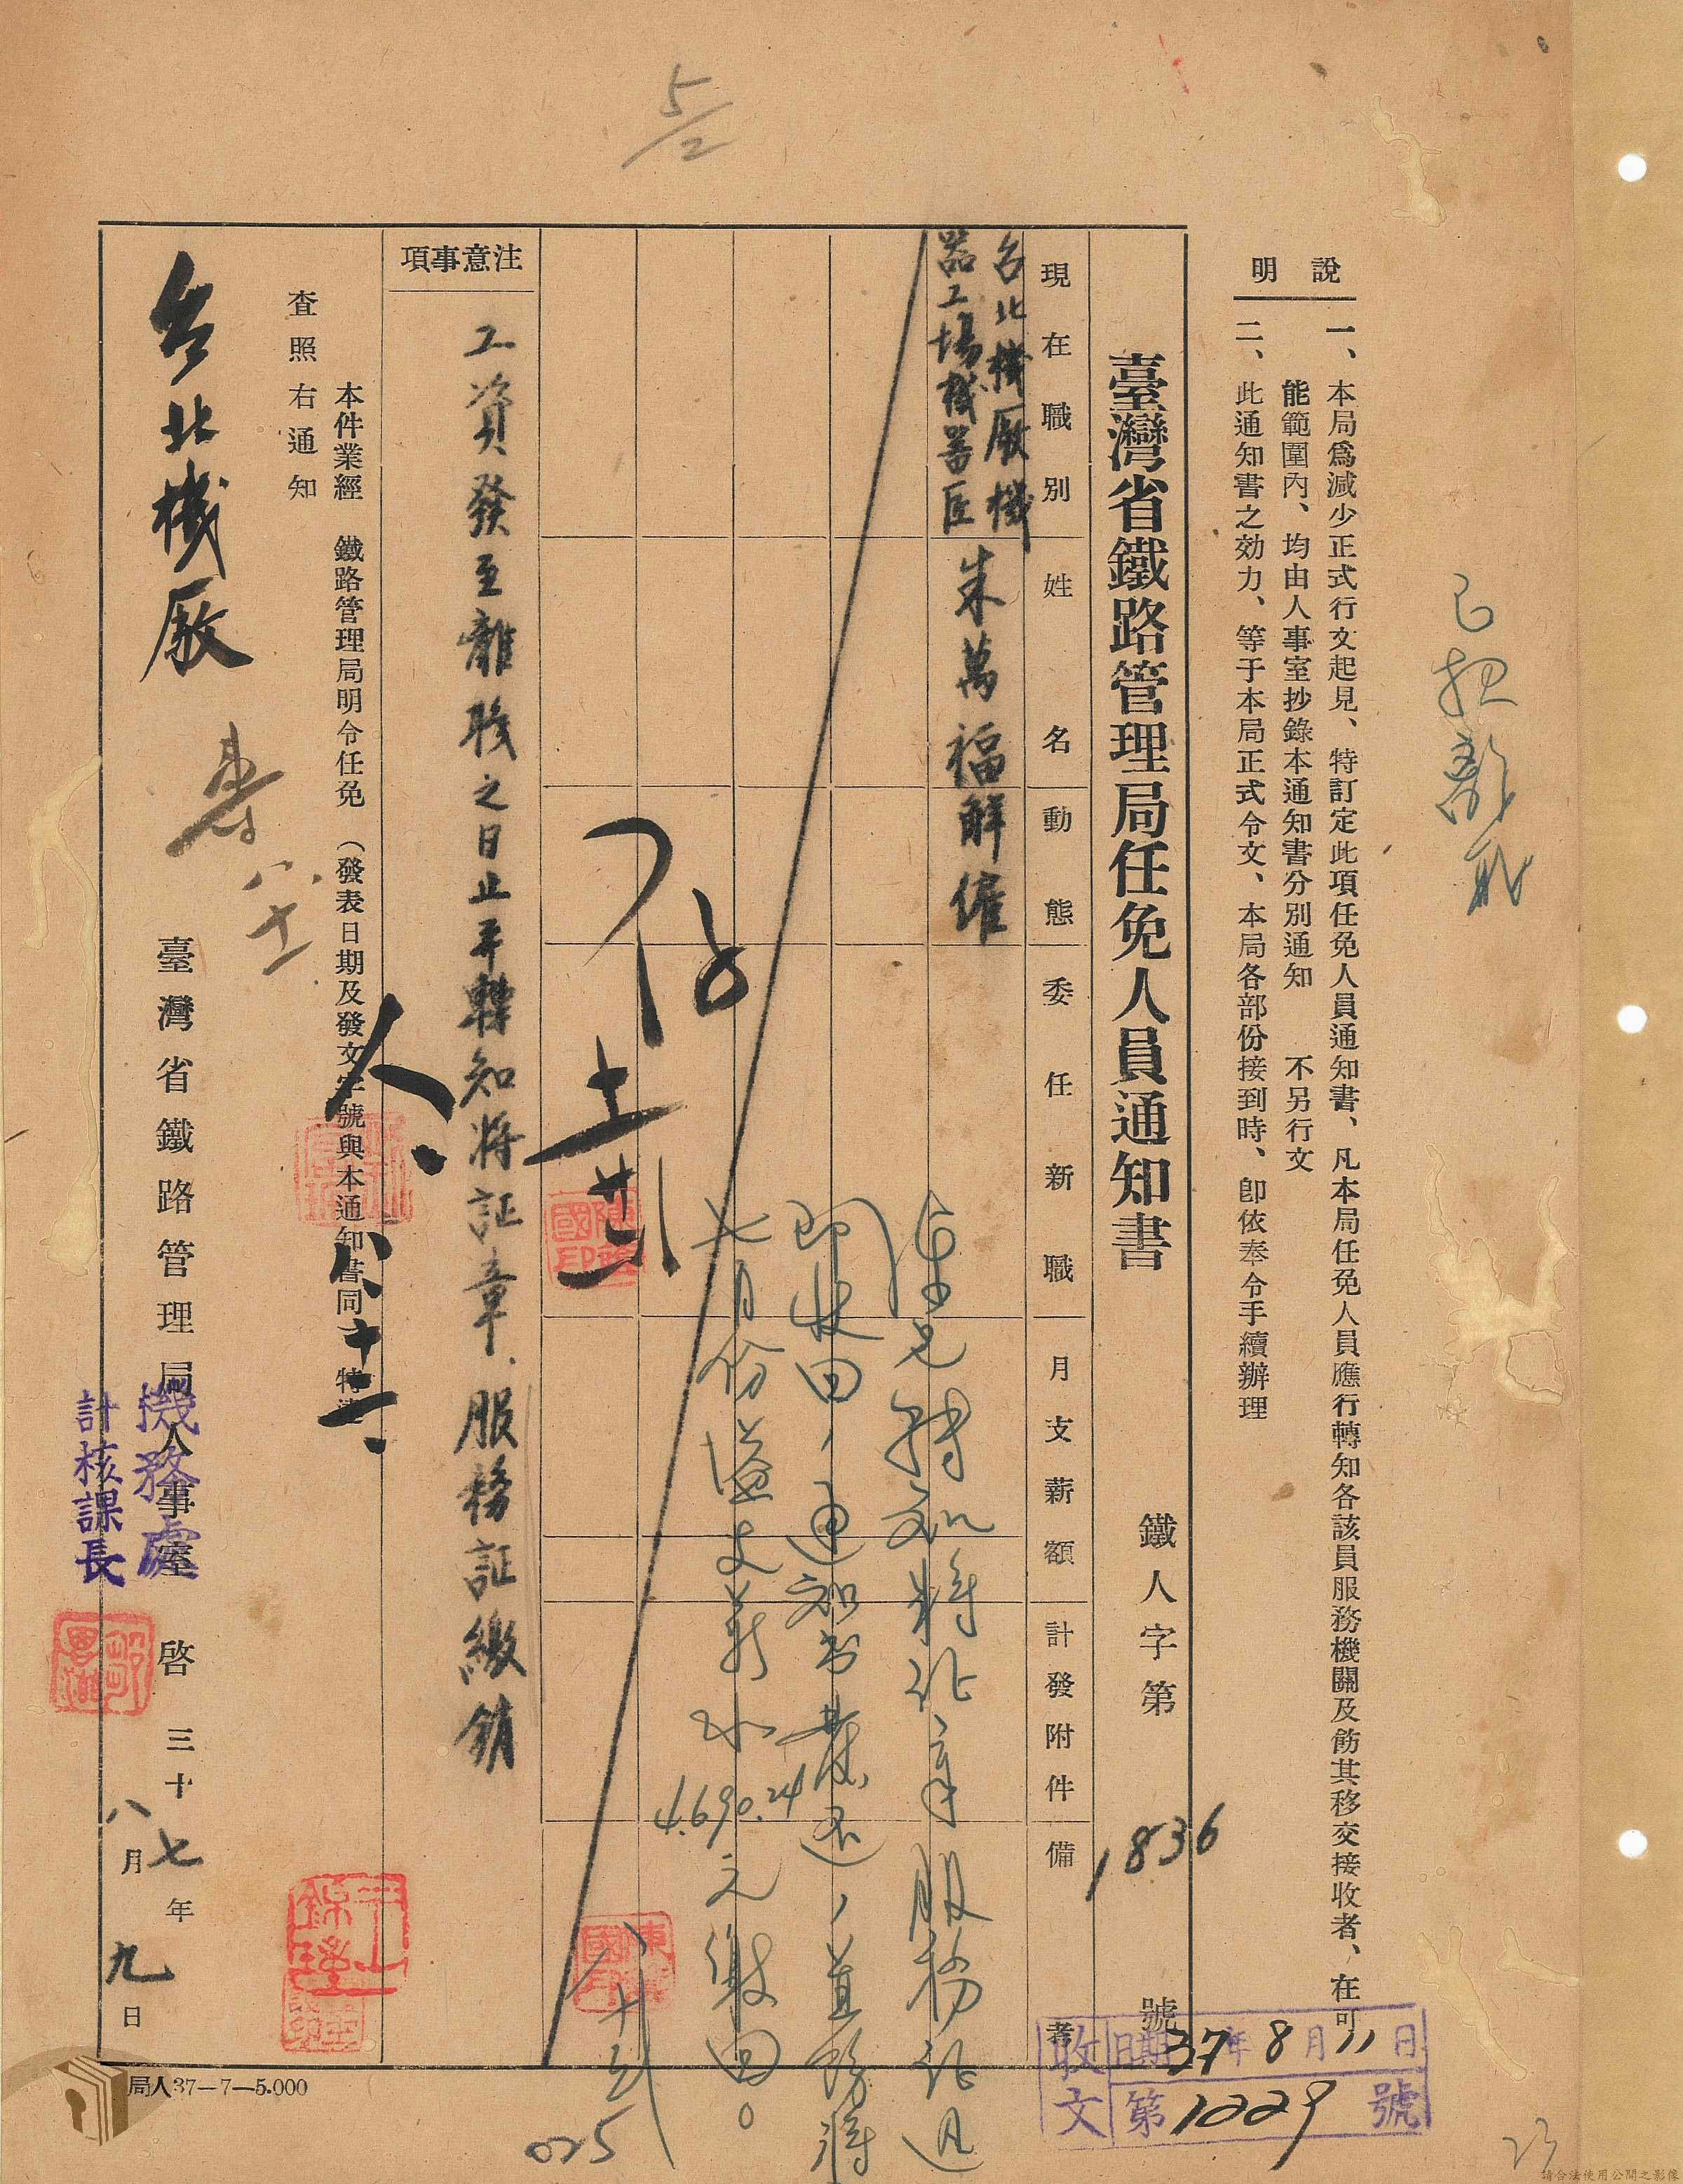 說明
一、本局爲減少正式行文起見、特訂定此項任免人員通知書、凡本局任免人員應行轉知各該員服務機關及飭其移交接收者、在可
能範圍內、均由人事室抄錄本通知書分別通知　不另行文
二、此通知書之効力、等于本局正式令文、本局各部份接到時、卽依奉令手續辦理
臺灣省鐵路管理局任免人員通知書
鐵人字第1836號
現在職別　姓名　動態　委任新職　月支薪額　計發附件　備考
台北機廠機
器工場機器匠
朱萬福
解僱
轉知將证章服務证迅
即收回，通知書發还，並飭將
七月份溢支薪水4.690.24元繳回。
注意事項
工資發至離職之日止并轉知將証章、服務証繳銷
本件業經　鐵路管理局明令任免　（發表日期及發文字號與本通知書同）特達
查照右通知
台北機廠
臺灣省鐵路管理局人事室　啓
三十七年
八月九日
機務處
計核課長
收文
日期37年8月11日
第1229號
5/2
八、十二、
025
局人37—7—5.000
請合法使用公開之影像